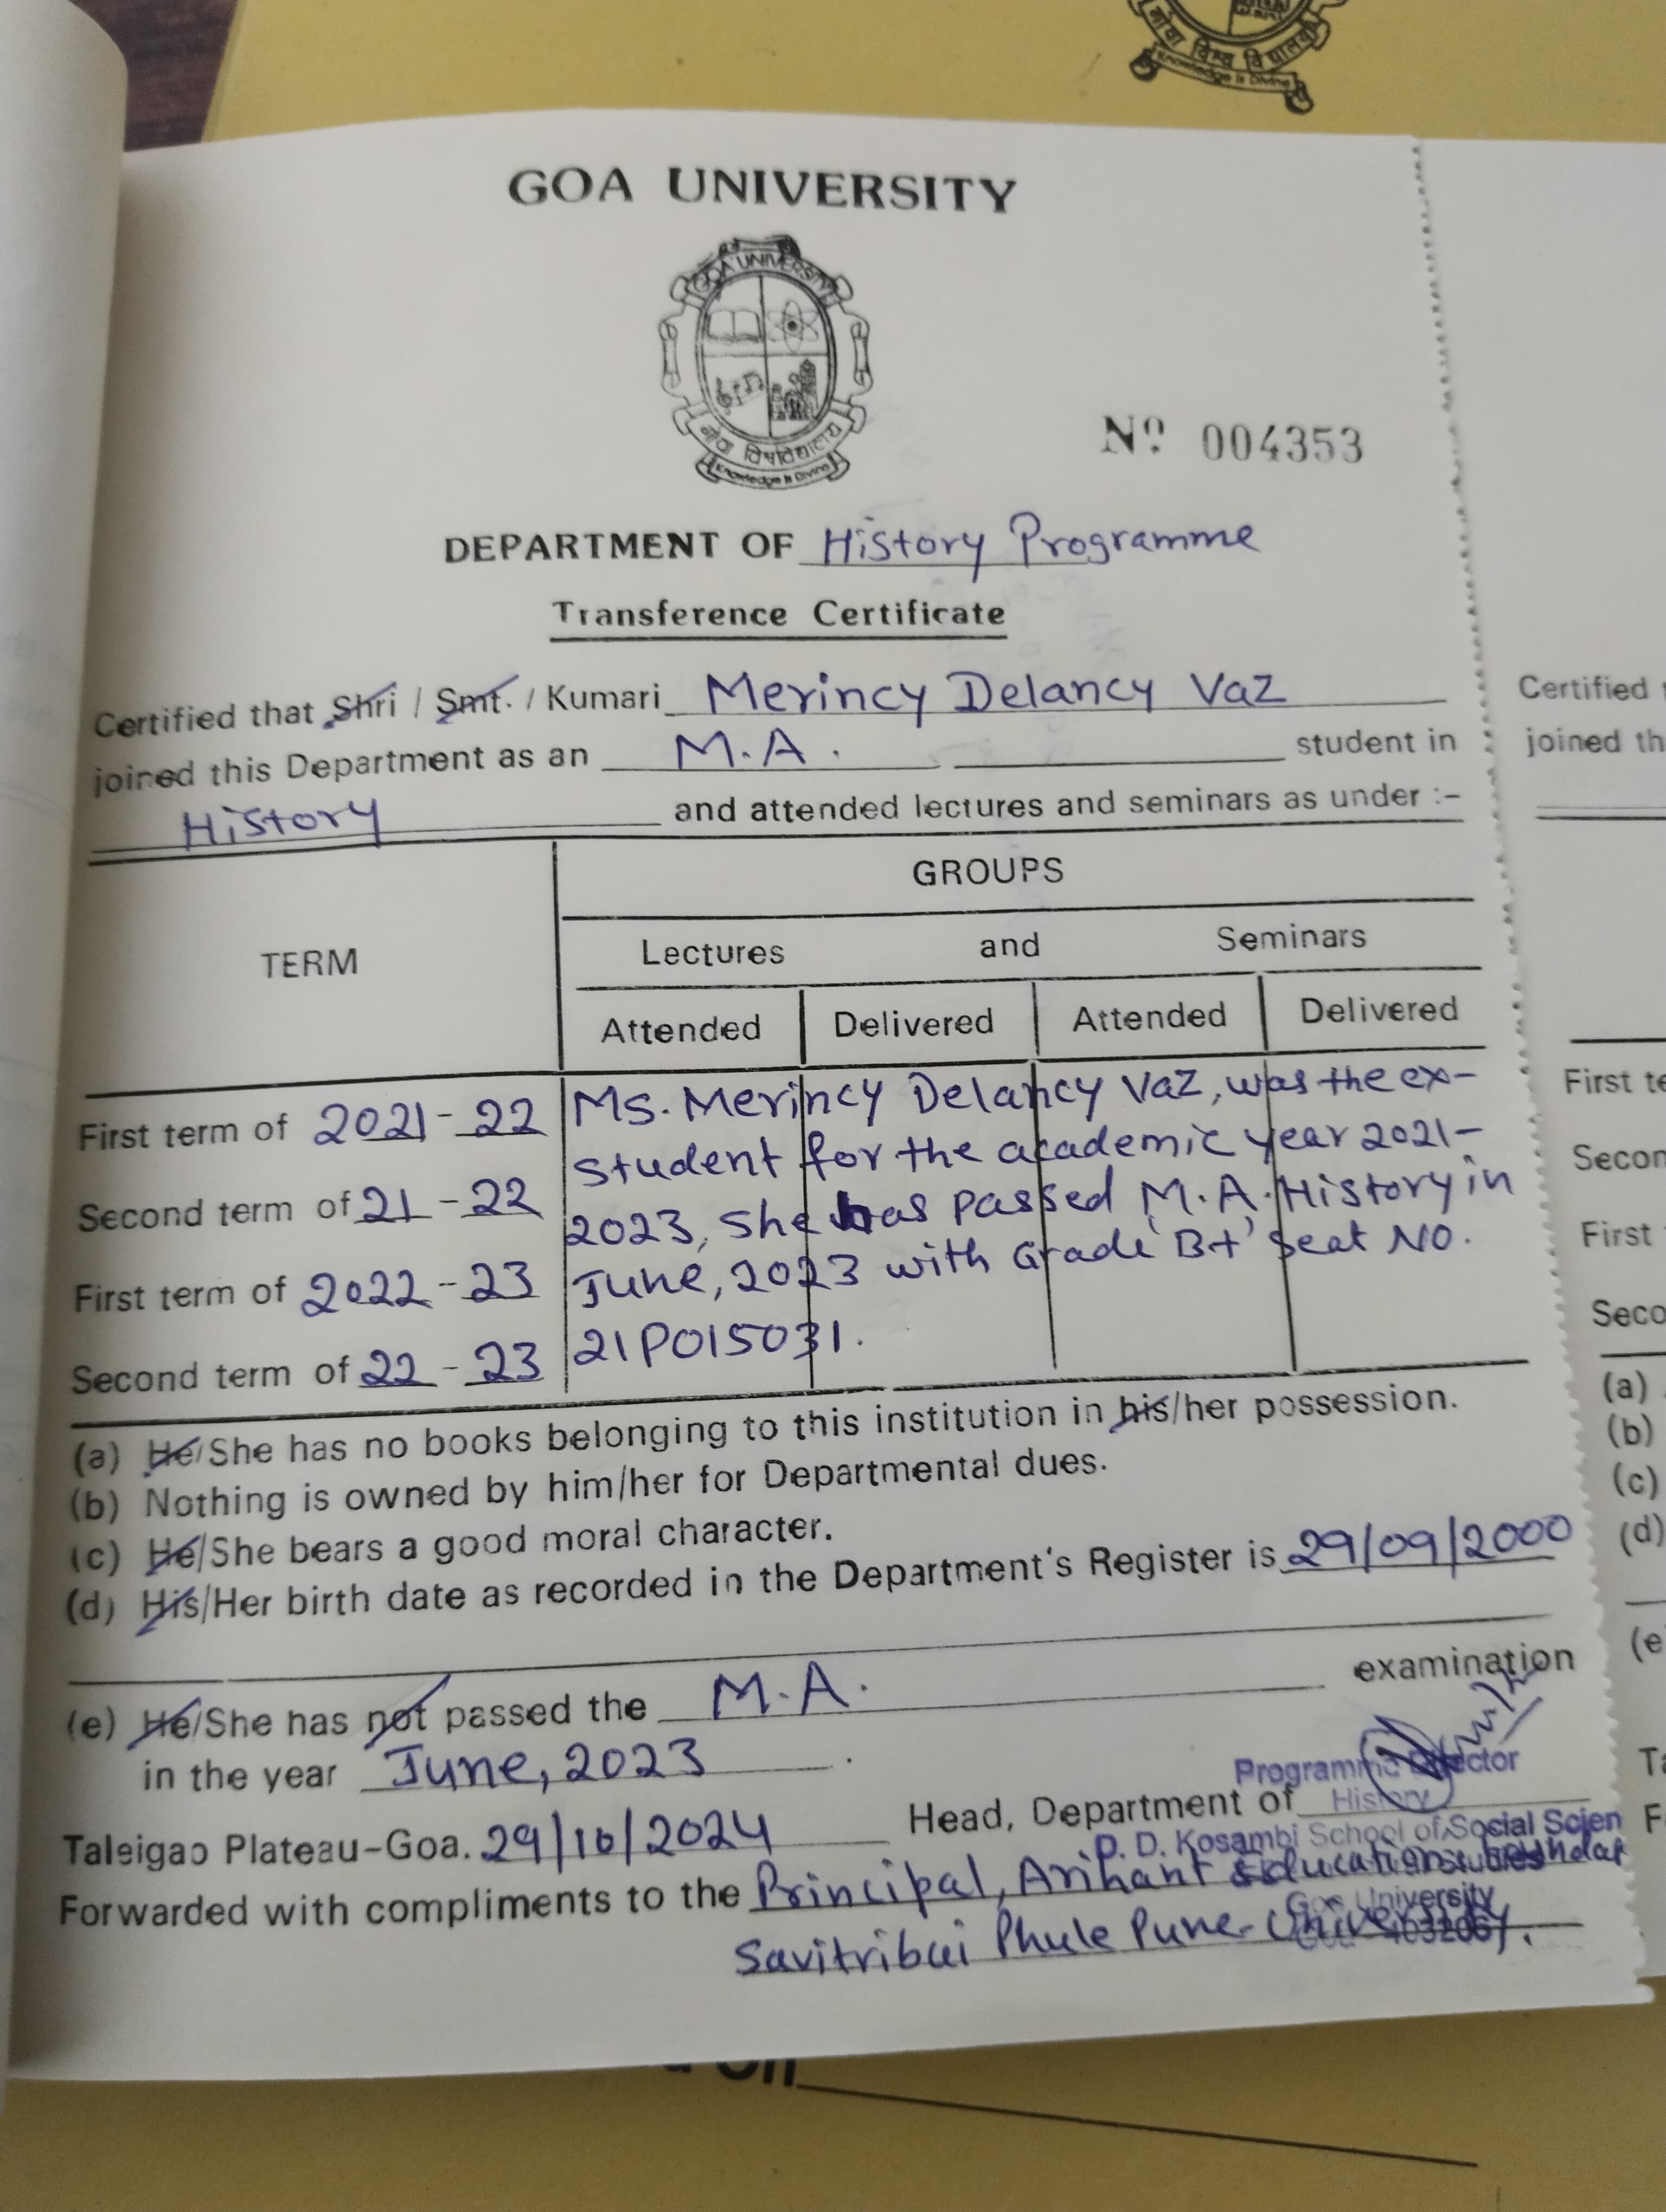 गोवा विश्व विद्यालय
Knowledge is Divine
GOA UNIVERSITY
GOA UNIVERSITY
गोवा विश्वविद्यालय
Knowledge is Divine
Nº 004353
DEPARTMENT OF History Programme
Transference Certificate
Certified that Shri / Smt. / Kumari Merincy Delancy Vaz
joined this Department as an M.A. student in
History and attended lectures and seminars as under :-
GROUPS
TERM Lectures and Seminars
Attended Delivered Attended Delivered
First term of 2021-22 Ms. Merincy Delancy Vaz, was the ex-
student for the academic year 2021-
Second term of 21-22 2023, She has passed M.A. History in
First term of 2022-23 June, 2023 with Grade 'B+' Seat No.
Second term of 22-23 21P015031.
(a) He/She has no books belonging to this institution in his/her possession.
(b) Nothing is owned by him/her for Departmental dues.
(c) He/She bears a good moral character.
(d) His/Her birth date as recorded in the Department's Register is 29/09/2000
(e) He/She has not passed the M.A. examination
in the year June, 2023.
Programme Director
Taleigao Plateau-Goa. 29/10/2024 Head, Department of History
D. D. Kosambi School of Social Scien
Forwarded with compliments to the Principal, Arihant Education
Goa University
Savitribai Phule Pune University.
Certified
joined th
First te
Secon
First
Seco
(a)
(b)
(c)
(d)
(e